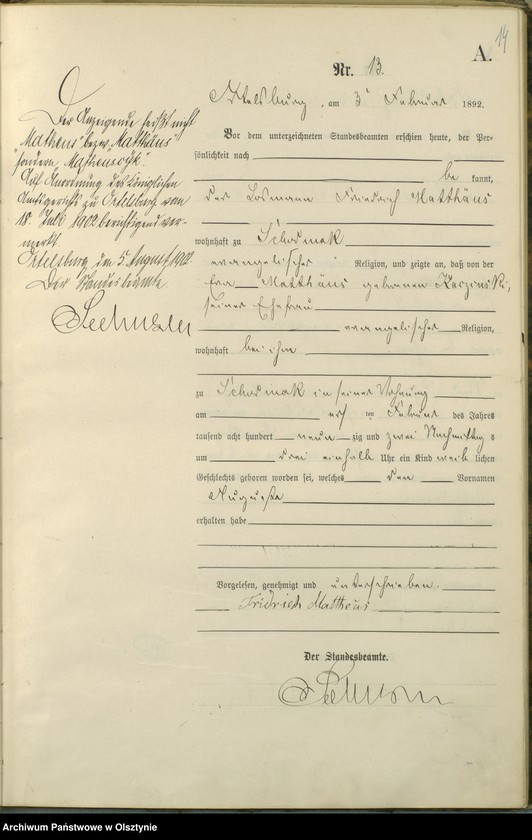 14
A.
Nr. 13.
Ortelsburg, am 3t Februar 1892.
Vor dem unterzeichneten Standesbeamten erschien heute, der Per-
sönlichkeit nach
be kannt,
der Losmann Friedrich Matthäus
wohnhaft zu
evangelischer Religion, und zeigte an, daß von der
Eva Matthäus geborenen
seiner Ehefrau
evangelischer Religion,
wohnhaft bei ihm
zu in seiner Wohnung
am ersten Februar des Jahres
tausend acht hundert neunzig und zwei Nachmittags
um drei einhalb Uhr ein Kind weiblichen
Geschlechts geboren worden sei, welches den Vornamen
Auguste
erhalten habe
Vorgelesen, genehmigt und unterschrieben.
Fridrich Mattheus
Der Standesbeamte.
Der Anzeigende heißt nicht
"Matheus" bezw. "Matthäus"
sondern
Auf Anordnung des Königlichen
Amtsgerichts zu Ortelsburg vom
18. Juli 1902 berichtigend ver-
merkt.
Ortelsburg, den 5. August 1902.
Der Standesbeamte
Archiwum Państwowe w Olsztynie